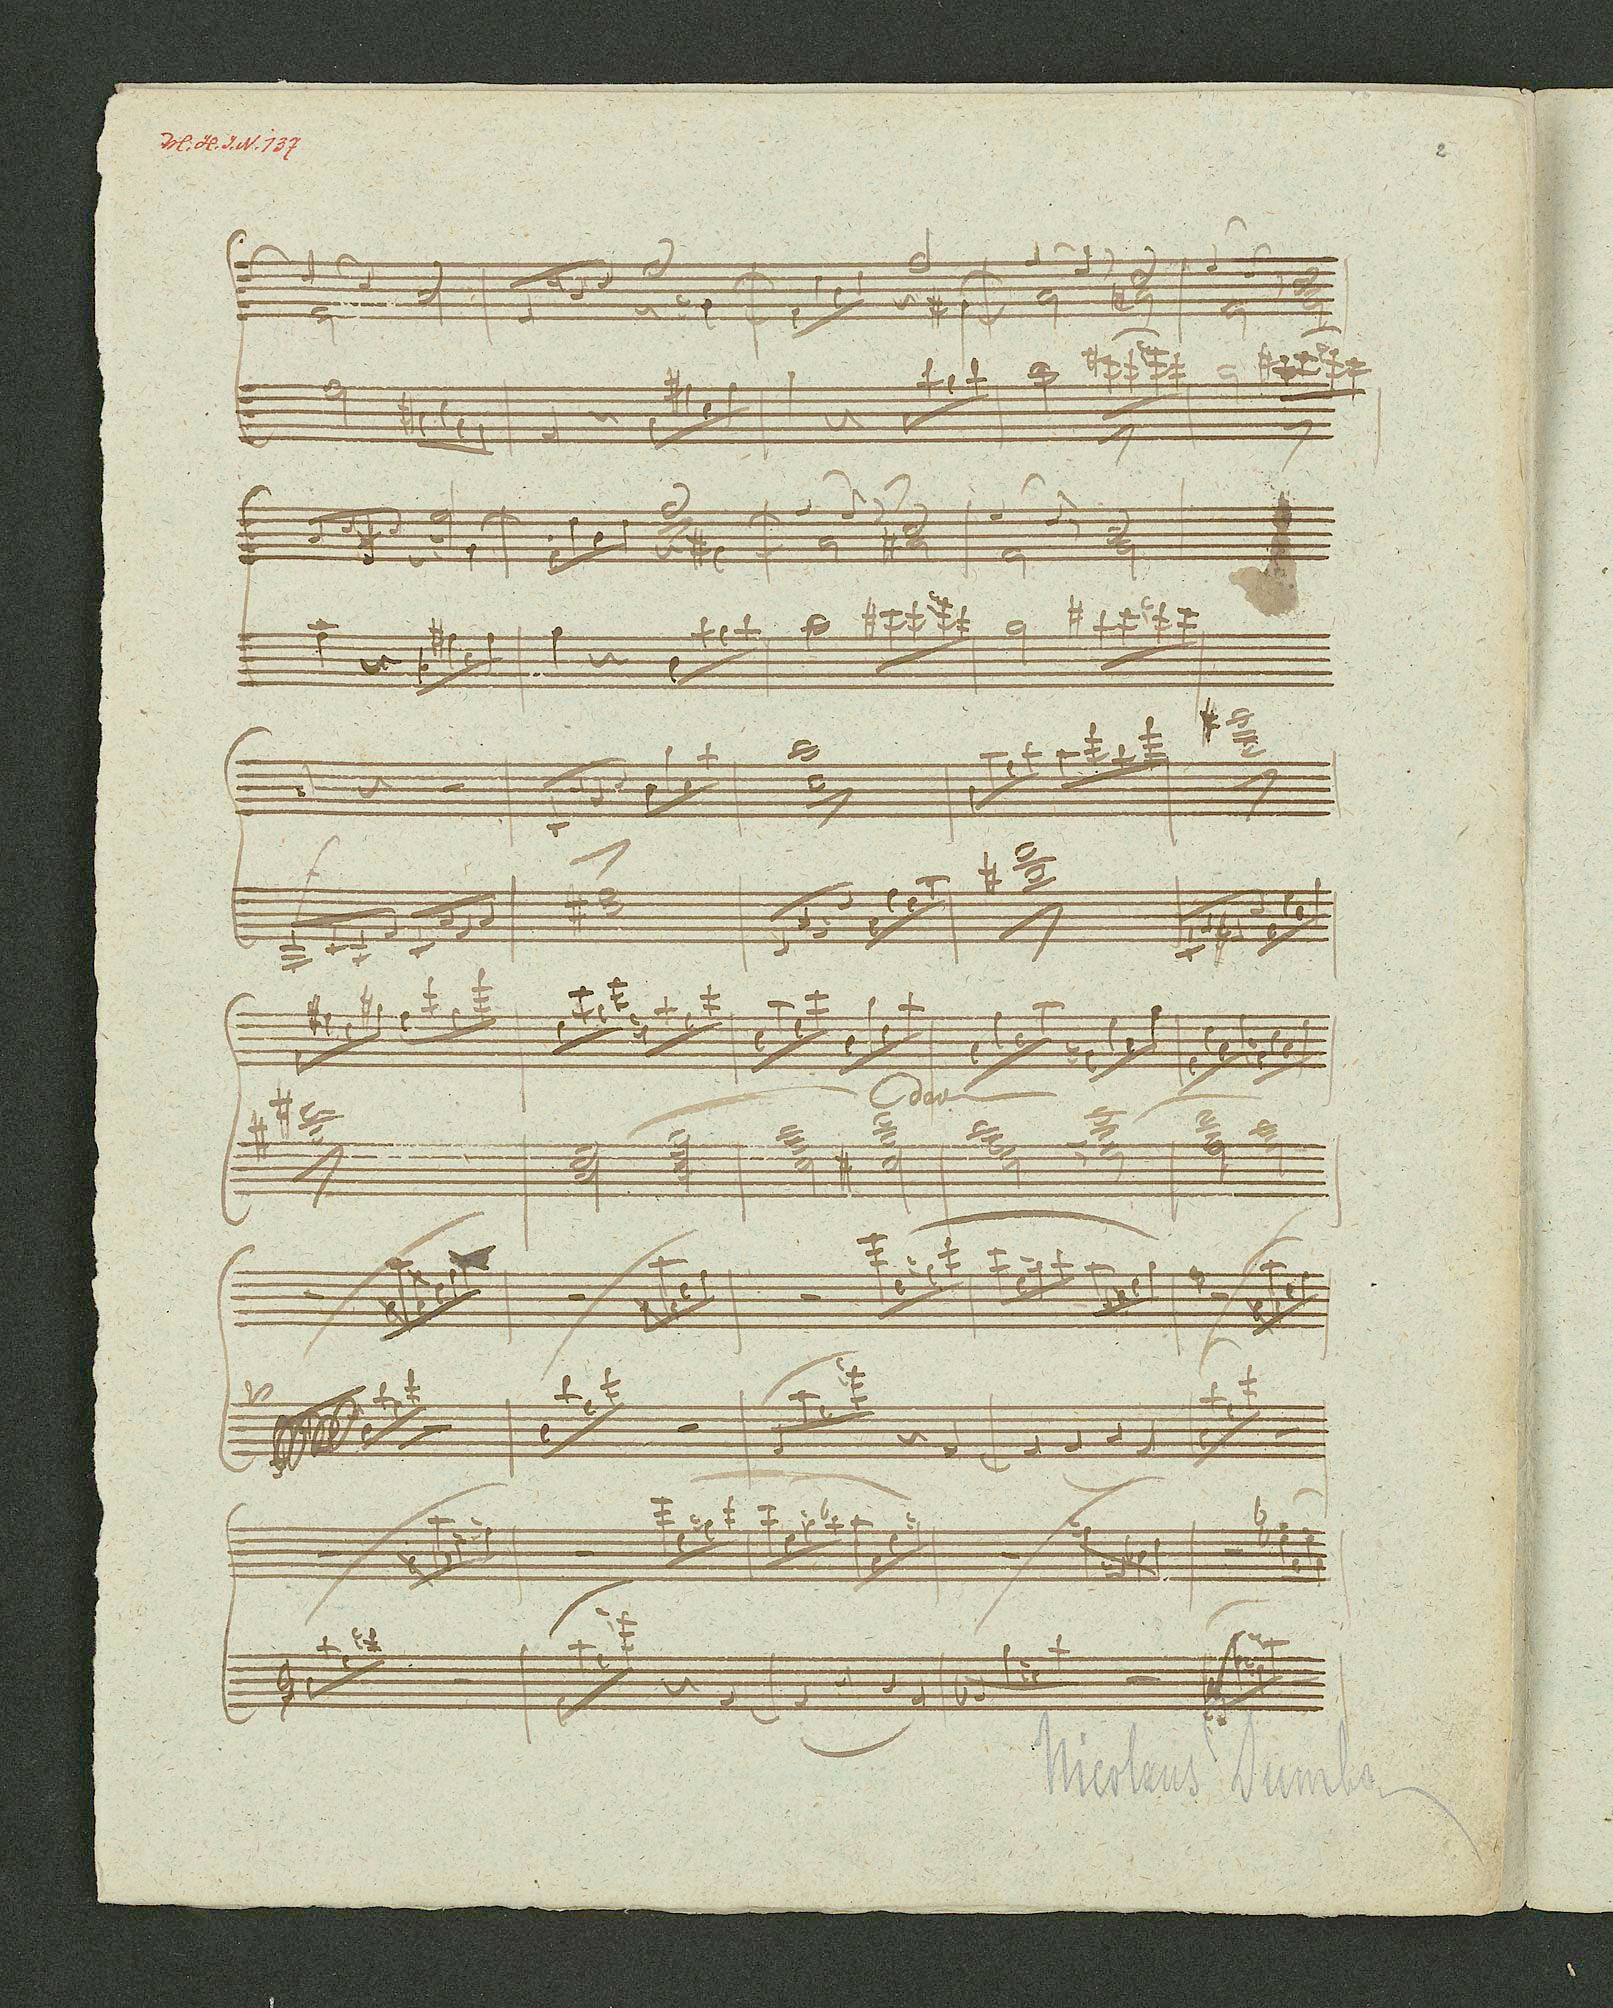 M.H.I.N. 137
2
f
Nicolaus Dumba